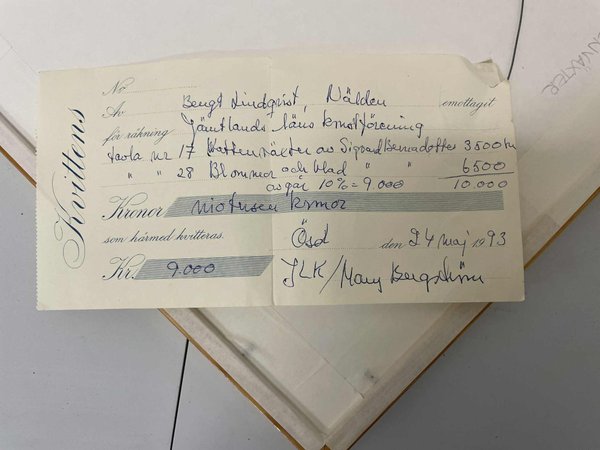 Kvittens
No
Av Bengt Lindqvist, Nälden emottagit
för räkning Jämtlands läns konstförening
tavla nr 17 Vattenväxter av Sigvard Bernadotte 3500 kr
" " 28 Blommor och blad " " 6500
avgår 10% = 9.000 10.000
Kronor niotusen kronor
som härmed kvitteras. Ösd den 24 maj 1993
Kr. 9.000 JLK/Mary Bergström
ENVÄXTER